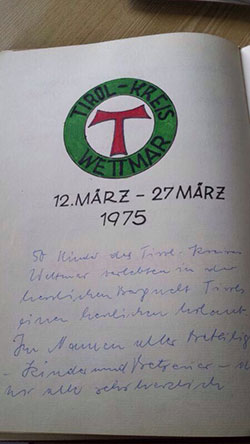 TIROL-KREIS
T
WETTMAR
12. MÄRZ - 27 MÄRZ
1975
50 Kinder des Tirol-Kreises
Wettmar verlebten in der
herrlichen Bergwelt Tirols
einen herrlichen Urlaub.
Im Namen aller Beteilig
- Kinder und Betreuer -
wir alle sehr herzlich